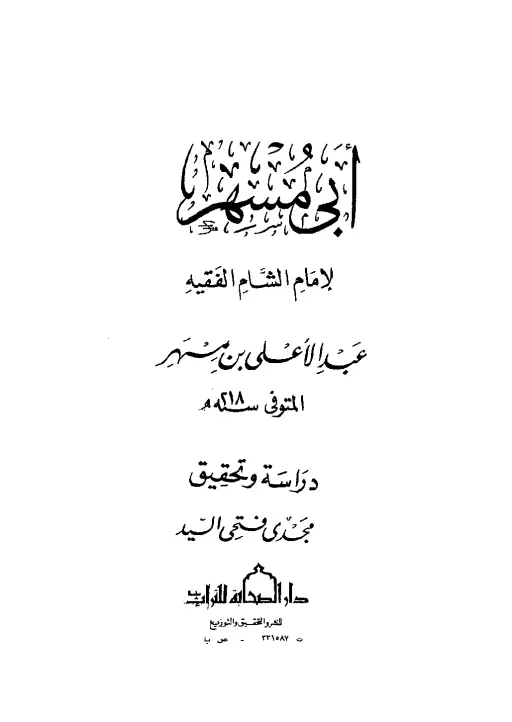 أَبي مُسْهِر
لإمَامِ الشَّامِ الفَقِيهِ
عَبْدِ الأَعْلى بن مِسْهَرِ
المتوفى سنة ٢١٨ هـ
دراسة وتحقيق
مَجْدي فتحي السَّيد
دار الصحابة للتراث
للنشر والتحقيق والتوزيع
ت ٣٣١٥٨٧ - ص ب